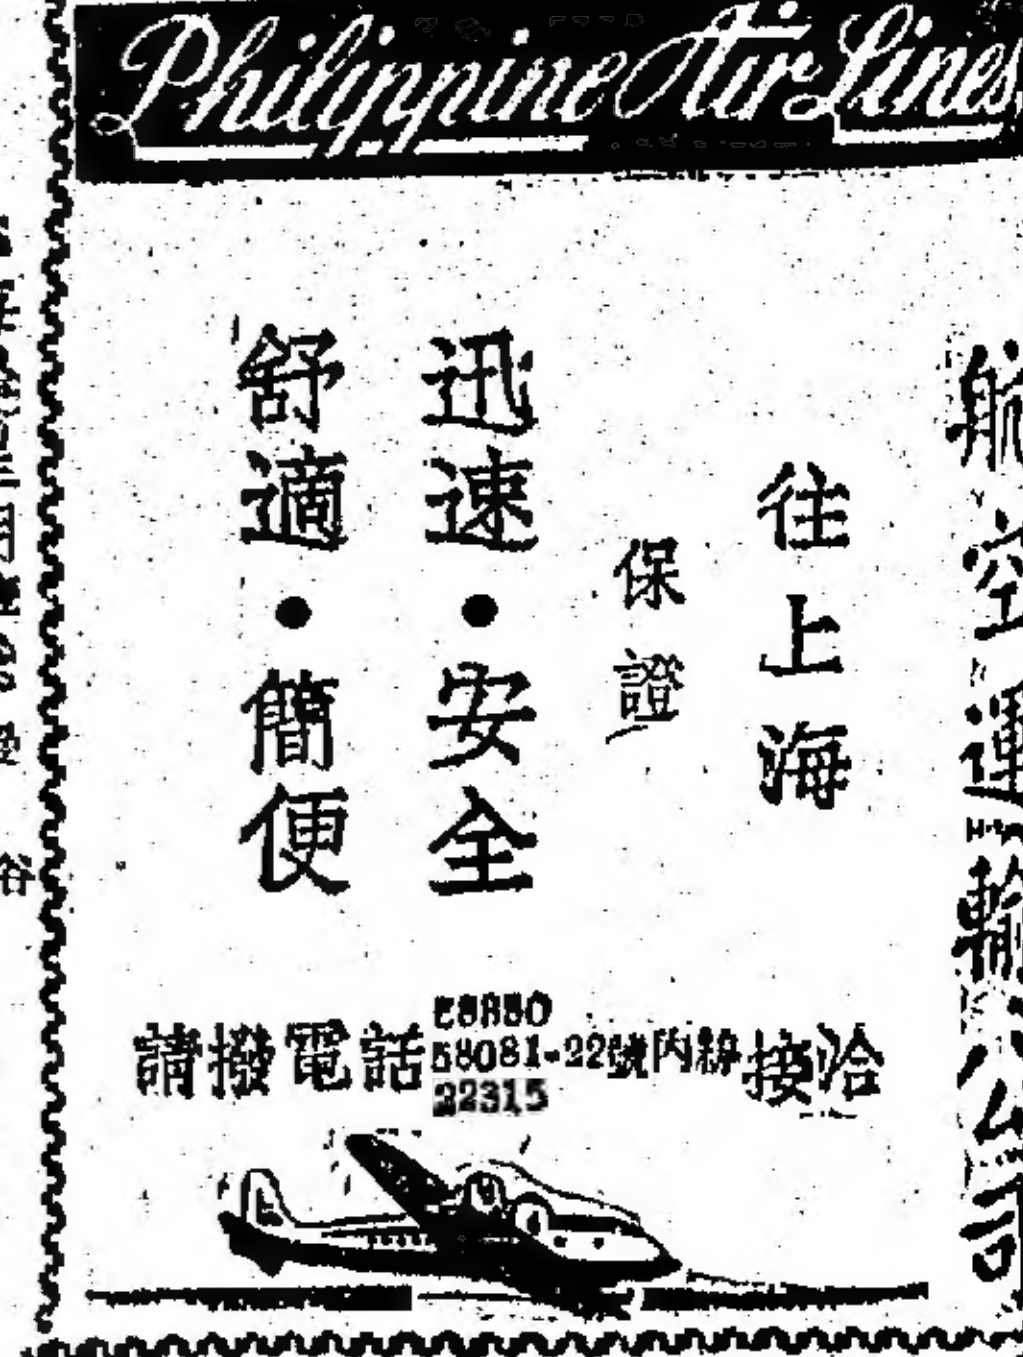 Philippine Air Lines
航空運輸公司
往上海
保證
迅速・安全
舒適・簡便
請撥電話
58081-22號內線
22315
接洽